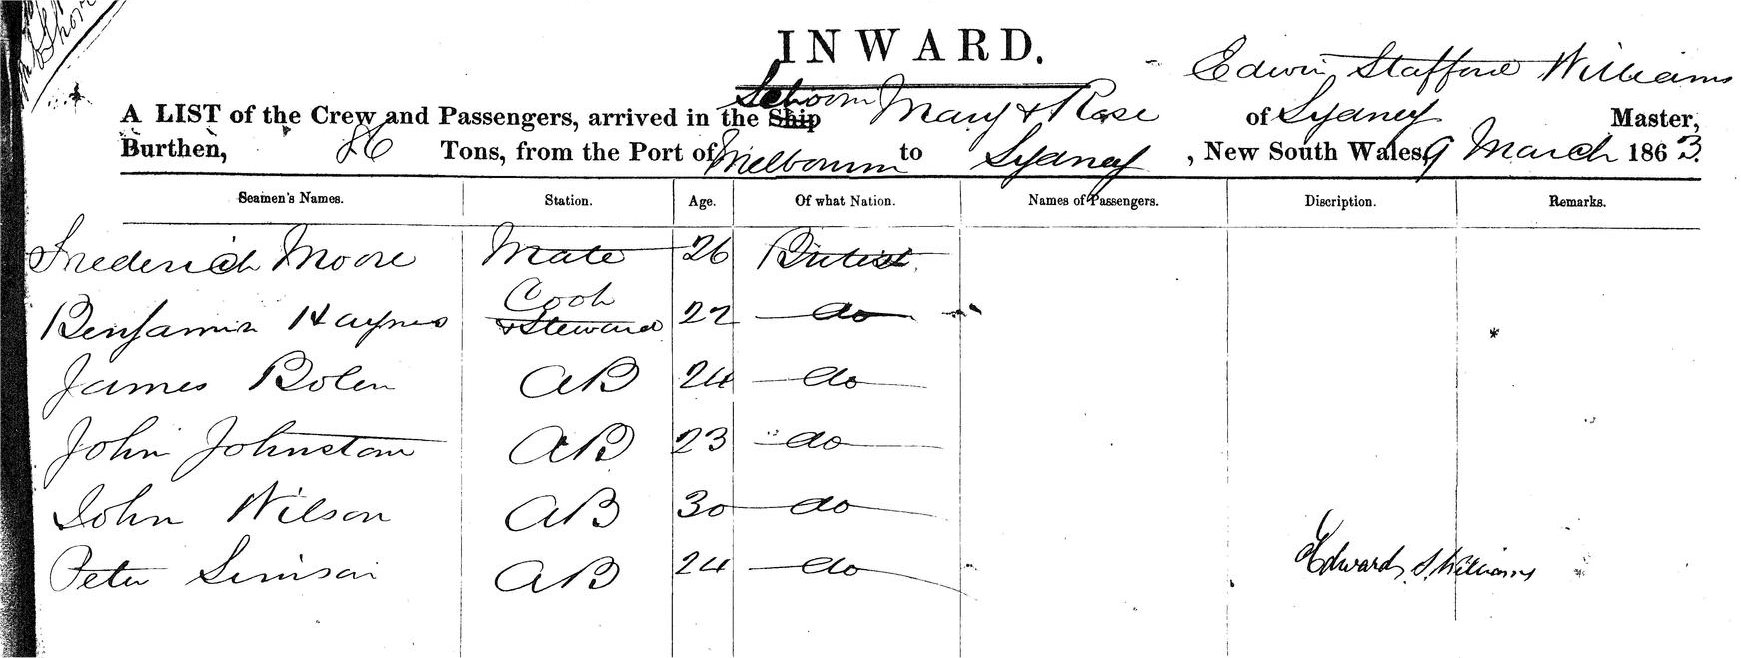 Shore
INWARD.
Edwin Stafford Williams
Schoon
A LIST of the Crew and Passengers, arrived in the Ship Mary & Rose of Sydney Master,
Burthen, 86 Tons, from the Port of Melbourne to Sydney, New South Wales, 9 March 1863.
Seamen's Names. Station. Age. Of what Nation. Names of Passengers. Discription. Remarks.
Frederick Moore Mate 26 British
Benjamin Haynes Cook & Steward 22 do
James Bolen AB 24 do
John Johnston AB 23 do
John Wilson AB 30 do
Peter Simson AB 24 do
Edward S. Williams